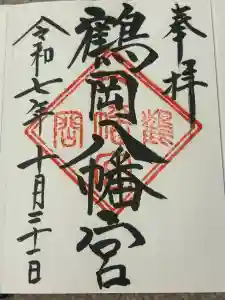 奉拝
鶴岡八幡宮
令和七年十月三十一日